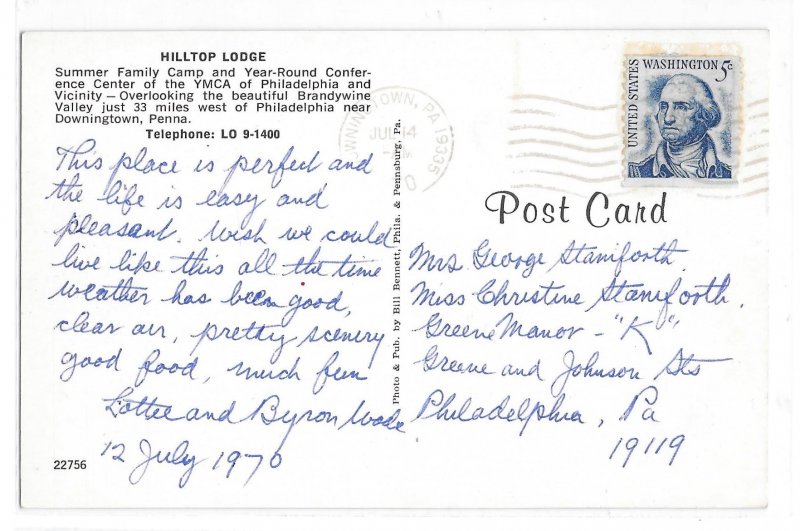 HILLTOP LODGE
Summer Family Camp and Year-Round Confer-
ence Center of the YMCA of Philadelphia and
Vicinity — Overlooking the beautiful Brandywine
Valley just 33 miles west of Philadelphia near
Downingtown, Penna.
Telephone: LO 9-1400
This place is perfect and
the life is easy and
pleasant. Wish we could
live like this all the time
weather has been good,
clear air, pretty scenery
good food, much fun
Lottee and Byron Wade
12 July 1970
22756
Photo & Pub. by Bill Bennett, Phila. & Pennsburg, Pa.
WNINGTOWN, PA 19335
JUL 14
UNITED STATES
WASHINGTON 5c
Post Card
Mrs George Staniforth
Miss Christine Staniforth.
Greene Manor - "K"
Greene and Johnson Sts
Philadelphia, Pa
19119